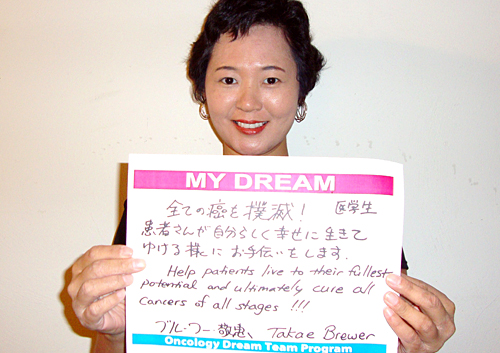 MY DREAM
全ての癌を撲滅! 医学生
患者さんが自分らしく幸せに生きて
ゆける様に お手伝いをします.
Help patients live to their fullest
potential and ultimately cure all
cancers of all stages !!!
ブルーワー 敬恵 Takae Brewer
Oncology Dream Team Program